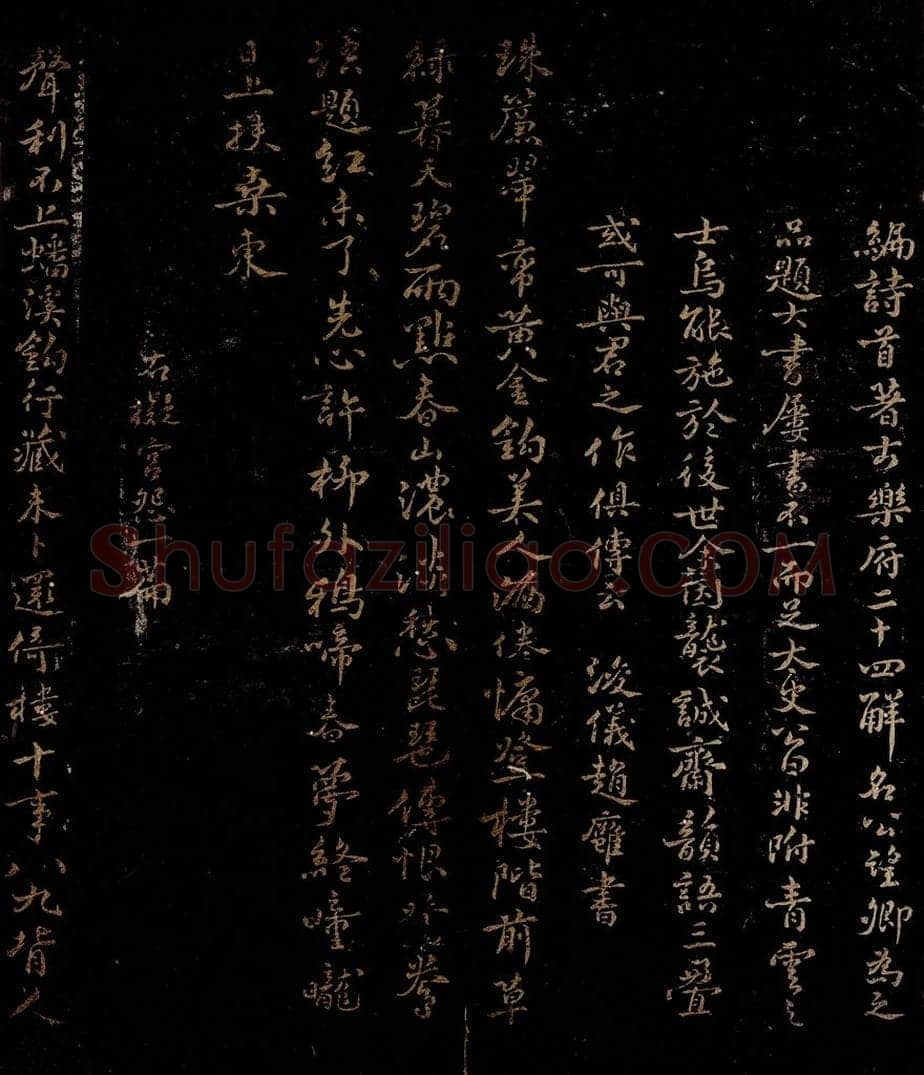 編詩首著古樂府二十四解名公望卿為之
品題大書屢書不一而足大史公曰非附青雲之
士烏能施於後世余因襲誠齋韻語三疊
或可與君之作俱傳云 浚儀趙雍書
珠簾翠帘黃金鉤美人病倦慵登樓階前草
綠暮天碧兩點春山濃淡愁琵琶傳恨
題紅未了先心許柳外鴉啼春夢終曈曨
日上扶桑東
右擬宮怨一篇
聲利不上蟠溪鉤行藏未卜還倚樓十事八九背人
Shufaziliao.COM